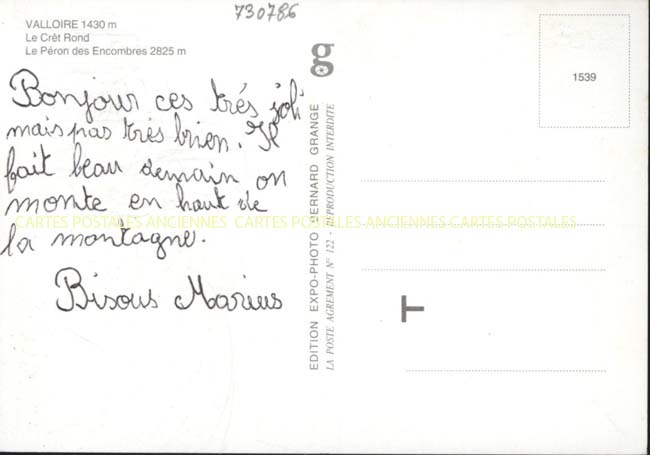 730786
VALLOIRE 1430 m
Le Crêt Rond
Le Péron des Encombres 2825 m
Bonjour ces trés joli
mais pas trés brien. Il
fait beau demain on
monte en haut de
la montagne.
Bisous Marius
g
EDITION EXPO-PHOTO BERNARD GRANGE
LA POSTE AGREMENT N° 122 - REPRODUCTION INTERDITE
1539
T
CARTES POSTALES ANCIENNES CARTES POSTALES ANCIENNES CARTES POSTALES